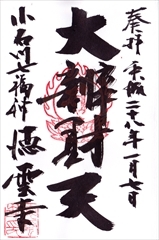 奉拝 平成二十八年一月七日
大辨財天
小石川七福神
徳雲寺